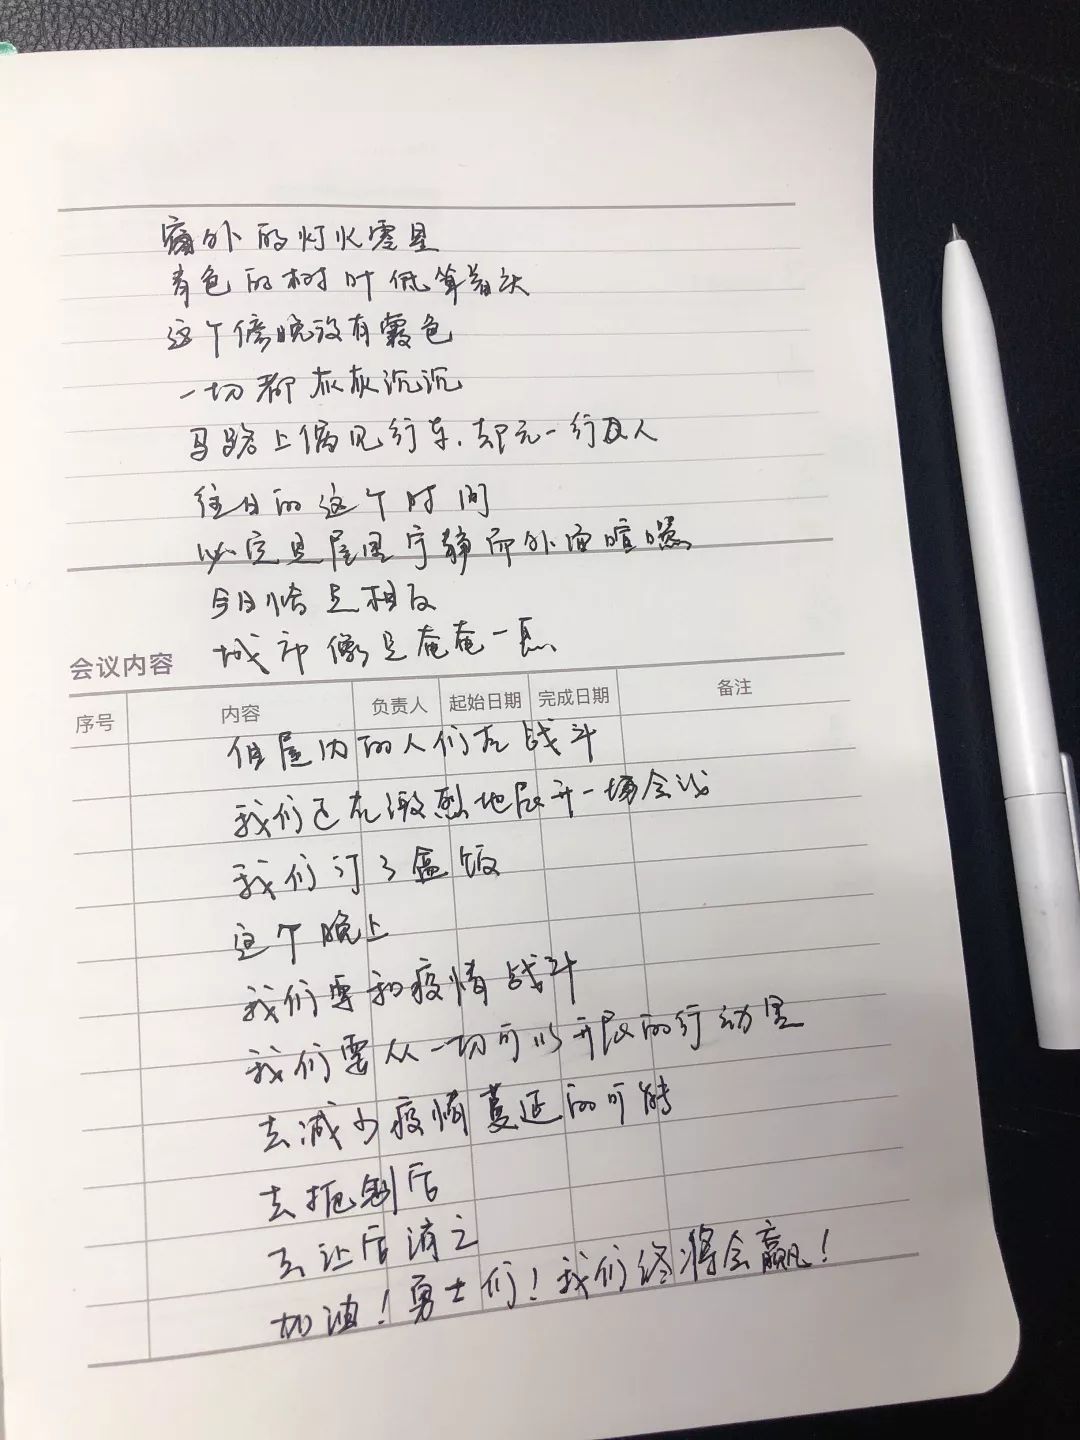 窗外的灯火零星
青色的树叶低耷着头
这个傍晚没有霞色
一切都灰灰沉沉
马路上偶见行车，却无一行人
往日的这个时间
必定是屋里宁静而外面喧嚣
今日恰是相反
城市像是奄奄一息
会议内容
序号 内容 负责人 起始日期 完成日期 备注
但屋内的人们在战斗
我们正在激烈地展开一场会议
我们订了盒饭
这个晚上
我们要和疫情战斗
我们要从一切可以开展的行动里
去减少疫情蔓延的可能
去扼制
去让 消亡
加油！勇士们！我们终将会赢！